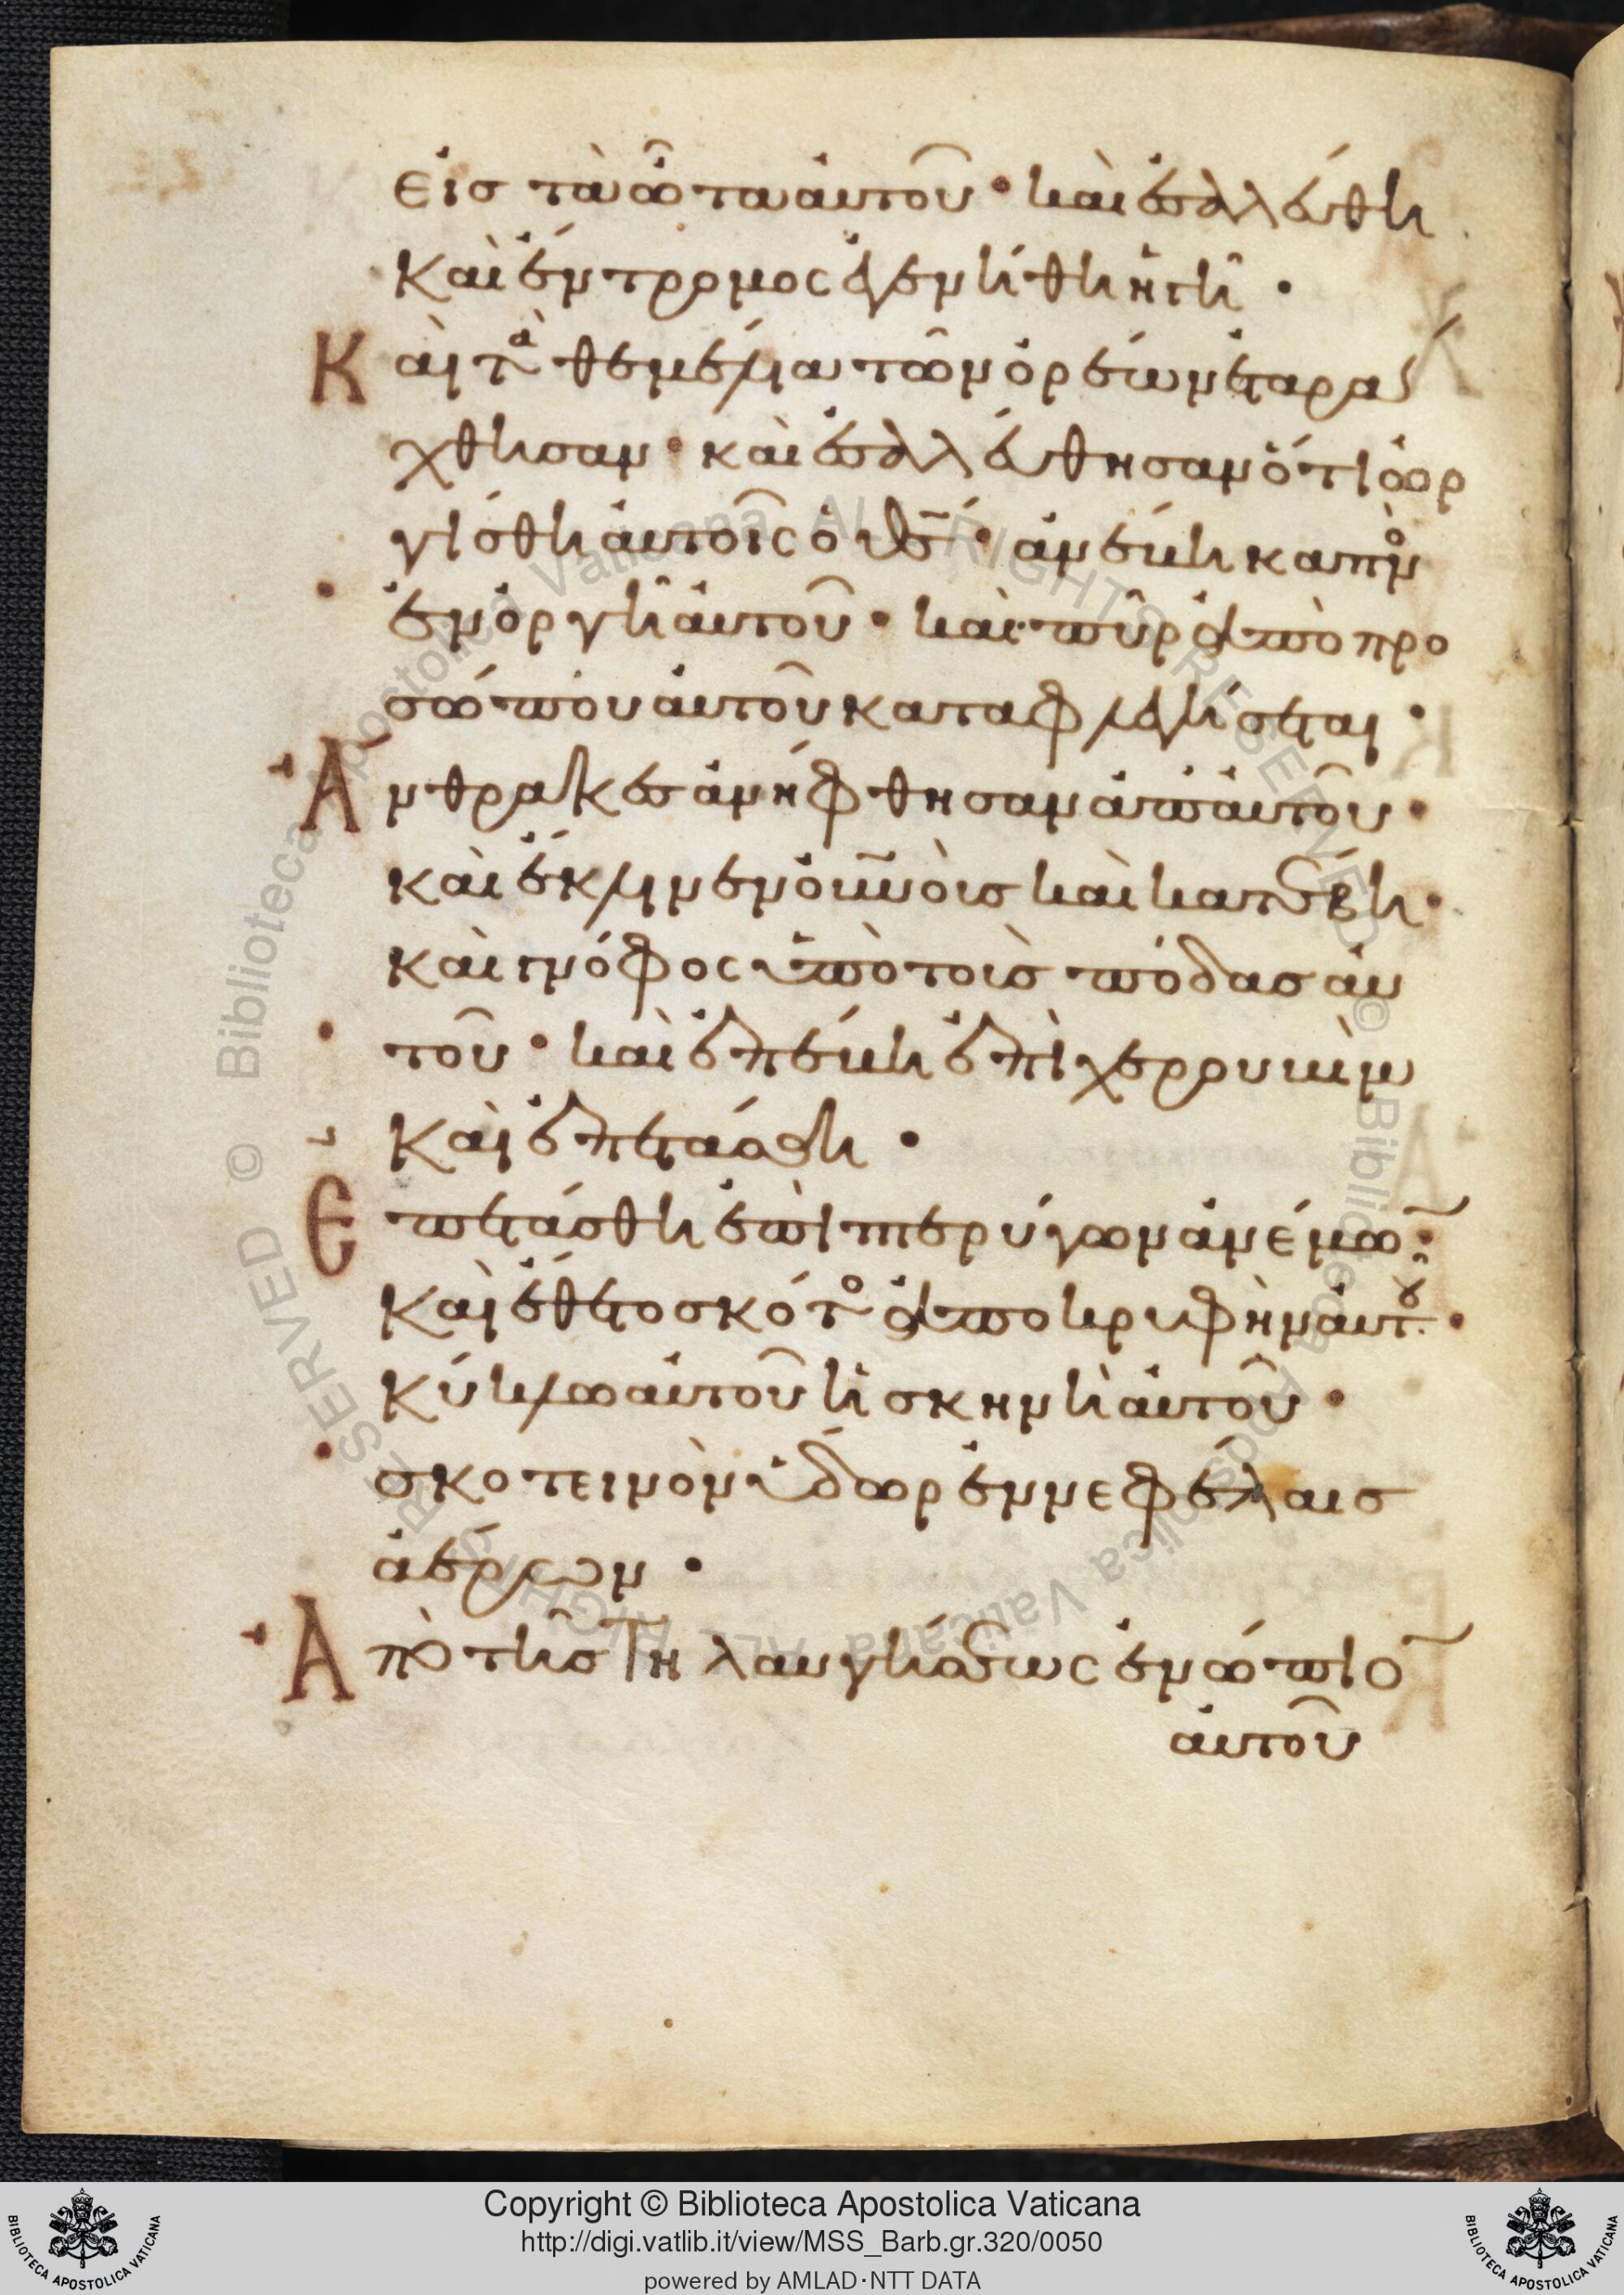 εἰσ τὰ ὦτα αὐτοῦ · καὶ ἐσαλεύθη
Καὶ ἔντρομος ἐγενήθη ἡ γῆ ·
Καὶ τὰ θεμέλια τῶν ὀρέων ἐταρά
χθησαν · καὶ ἐσαλεύθησαν ὅτι ὠρ
γίσθη αὐτοῖς ὁ θς̅ · ἀνέβη καπνὸσ
ἐν ὀργῆ αὐτοῦ · καὶ πῦρ ἀπὸ προ
σώπου αὐτοῦ καταφλεγήσεται ·
Ἄνθρακες ἀνήφθησαν ἀπ' αὐτοῦ ·
καὶ ἔκλινεν οὐ̅νοὺσ καὶ κατέβη ·
καὶ γνόφος ὑπὸ τοὺσ πόδασ αὐ
τοῦ · καὶ ἐπέβη ἐπὶ χερουβὶμ
Καὶ ἐπετάσθη ·
Ἐπετάσθη ἐπὶ πτερύγων ἀνέμω̅ ·
Καὶ ἔθετο σκότος ἀποκρυφὴν αὐτοῦ ·
Κύκλω αὐτοῦ ἡ σκηνὴ αὐτοῦ ·
σκοτεινὸν ὕδωρ ἐν νεφέλαισ
ἀέρων ·
Ἀπὸ τῆσ τηλαυγήσεως ἐνώπιο̅
αὐτοῦ
Copyright © Biblioteca Apostolica Vaticana
http://digi.vatlib.it/view/MSS_Barb.gr.320/0050
powered by AMLAD·NTT DATA
BIBLIOTECA APOSTOLICA VATICANA
BIBLIOTECA APOSTOLICA VATICANA